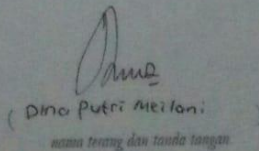 ( Dina Putri Meilani
nama terang dan tanda tangan